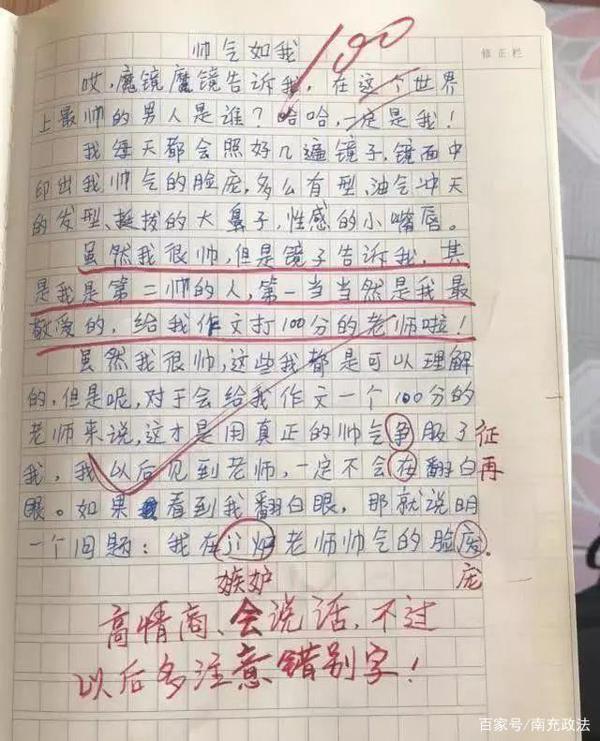 帅气如我
100
修正栏
哎,魔镜魔镜告诉我,在这个世界
上最帅的男人是谁?哈哈,一定是我!
我每天都会照好几遍镜子,镜面中
印出我帅气的脸庞,多么有型、油气冲天
的发型、挺拔的大鼻子,性感的小嘴唇。
虽然我很帅,但是镜子告诉我,其
是我是第二帅的人,第一当当然是我最
敬爱的,给我作文打100分的老师啦!
虽然我很帅,这些我都是可以理解
的,但是呢,对于会给我作文一个100分的
老师来说,这才是用真正的帅气争服了 征
我,我以后见到老师,一定不会在翻白 再
眼。如果看到我翻白眼,那就说明
一个问题:我在 老师帅气的脸
嫉妒 庞
高情商、会说话,不过
以后多注意错别字!
百家号/南充政法